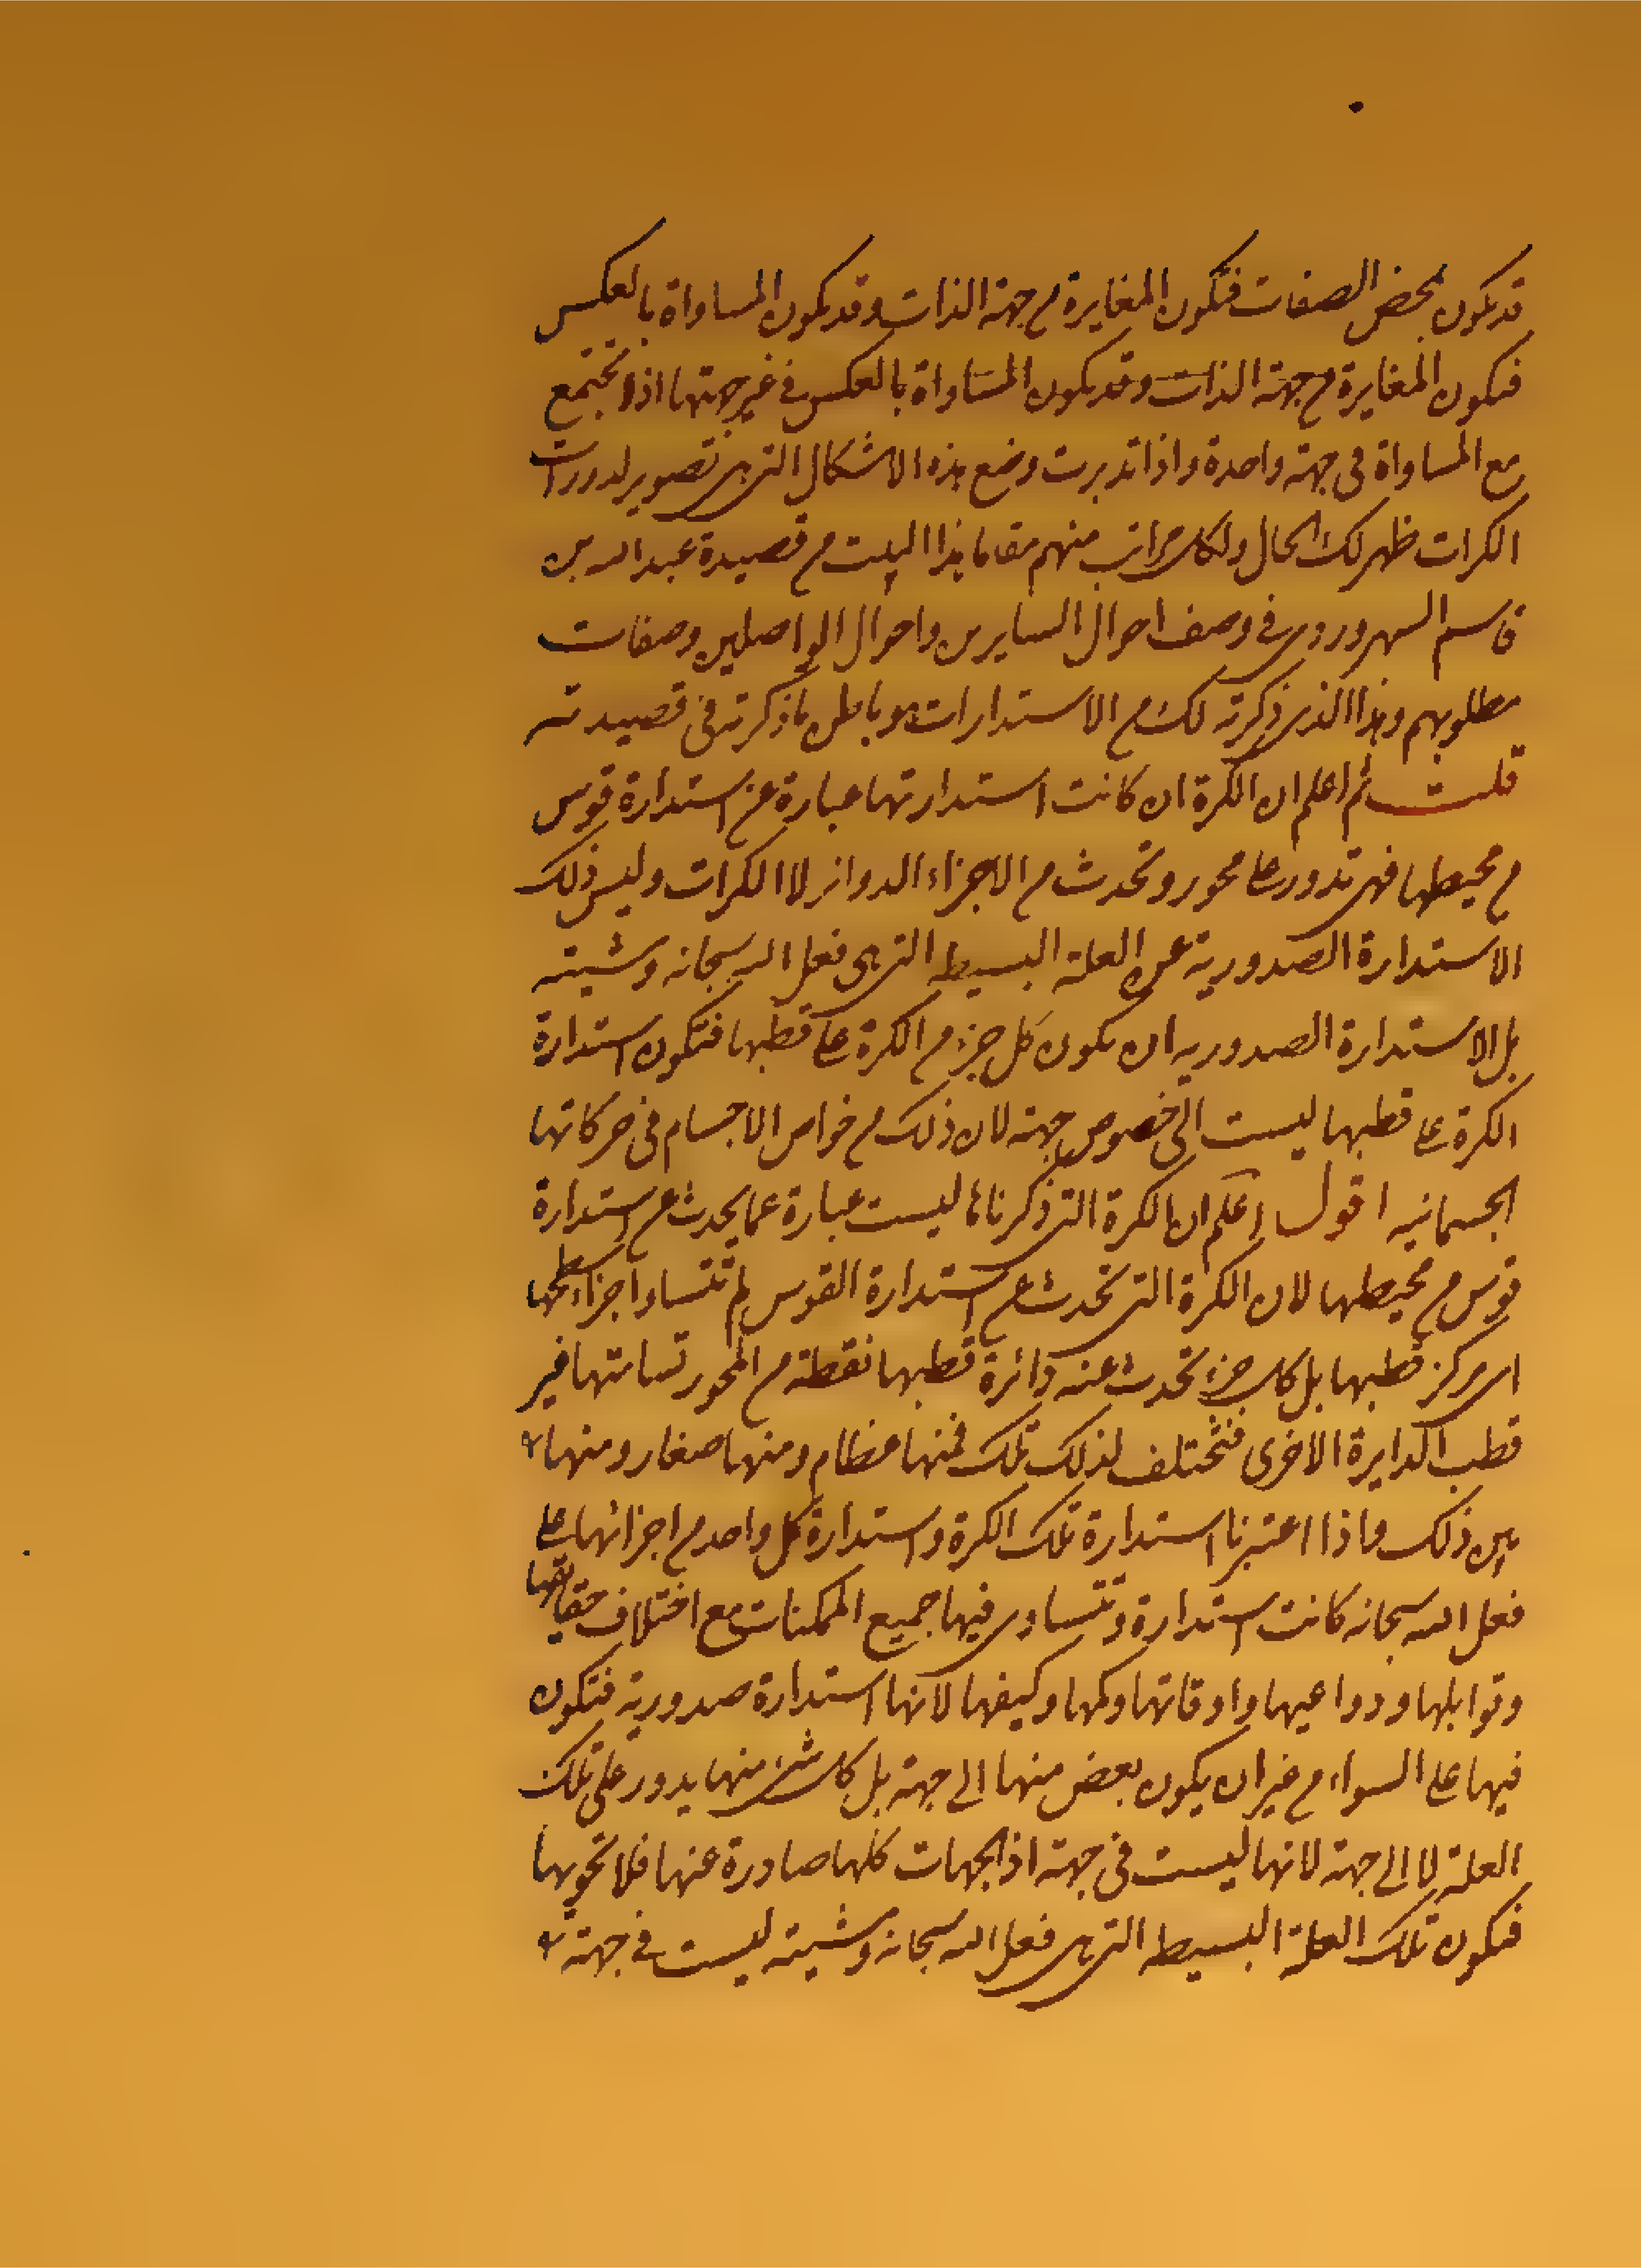 قد يكون بمحض الصفات فتكون المغايرة من جهة الذات وقد يكون المساواة بالعكس
فتكون المغايرة من جهة الذات وقد يكون المساواة بالعكس في غير جهتها اذ لا تجتمع
مع المساواة في جهة واحدة واذا تدبرت وضع هذه الاشكال التي هي تصوير لدورات
الكرات ظهر لك الحال ولكل مراتب منهم مقاما هذا البيت من قصيدة عبد الله بن
قاسم السهروردي في وصف احوال السايرين واحوال الواصلين وصفات
مطلوبهم وهذا الذي ذكرته لك من الاستدارات هو باطن ما ذكرته في قصيدته
قلت ثم اعلم ان الكرة ان كانت استدارتها عبارة عن استدارة قوس
من محيطها فهي تدور على محور وتحدث من الاجزاء الدوائر لا الكرات وليس ذلك
الاستدارة الصدورية عن العلة البسيطه التي هي فعل الله سبحانه ومشيته
بل الاستدارة الصدوريه ان يكون كل جزء من الكرة على قطبها فتكون استدارة
الكرة على قطبها ليست الى خصوص جهة لان ذلك من خواص الاجسام في حركاتها
الجسمانيه اقول اعلم ان الكرة التي ذكرناها ليست عبارة عما يحدث عن استدارة
قوس من محيطها لان الكرة التي تحدث عن استدارة القوس لم تتساو اجزاء سطحها
الى مركز قطبها بل كل جزء تحدث عنه دائرة قطبها نقطة من المحور تسامتها غير
قطب الدايرة الاخرى فتختلف لذلك تلك فمنها عظام ومنها صغار ومنها
بين ذلك واذا اعتبرنا استدارة تلك الكرة واستدارة كل واحد من اجزائها على
فعل الله سبحانه كانت استدارة وتتساوى فيها جميع الممكنات مع اختلاف حقايقها
وقوابلها ودواعيها واوقاتها وكمها وكيفها لانها استدارة صدورية فتكون
فيها على السواء من غير ان يكون بعض منها الى جهة بل كل شئ منها يدور على تلك
العلة لا الى جهة لانها ليست في جهة اذ الجهات كلها صادرة عنها فلا تحويها
فتكون تلك العلة البسيطه التي هي فعل الله سبحانه ومشيته ليست في جهة